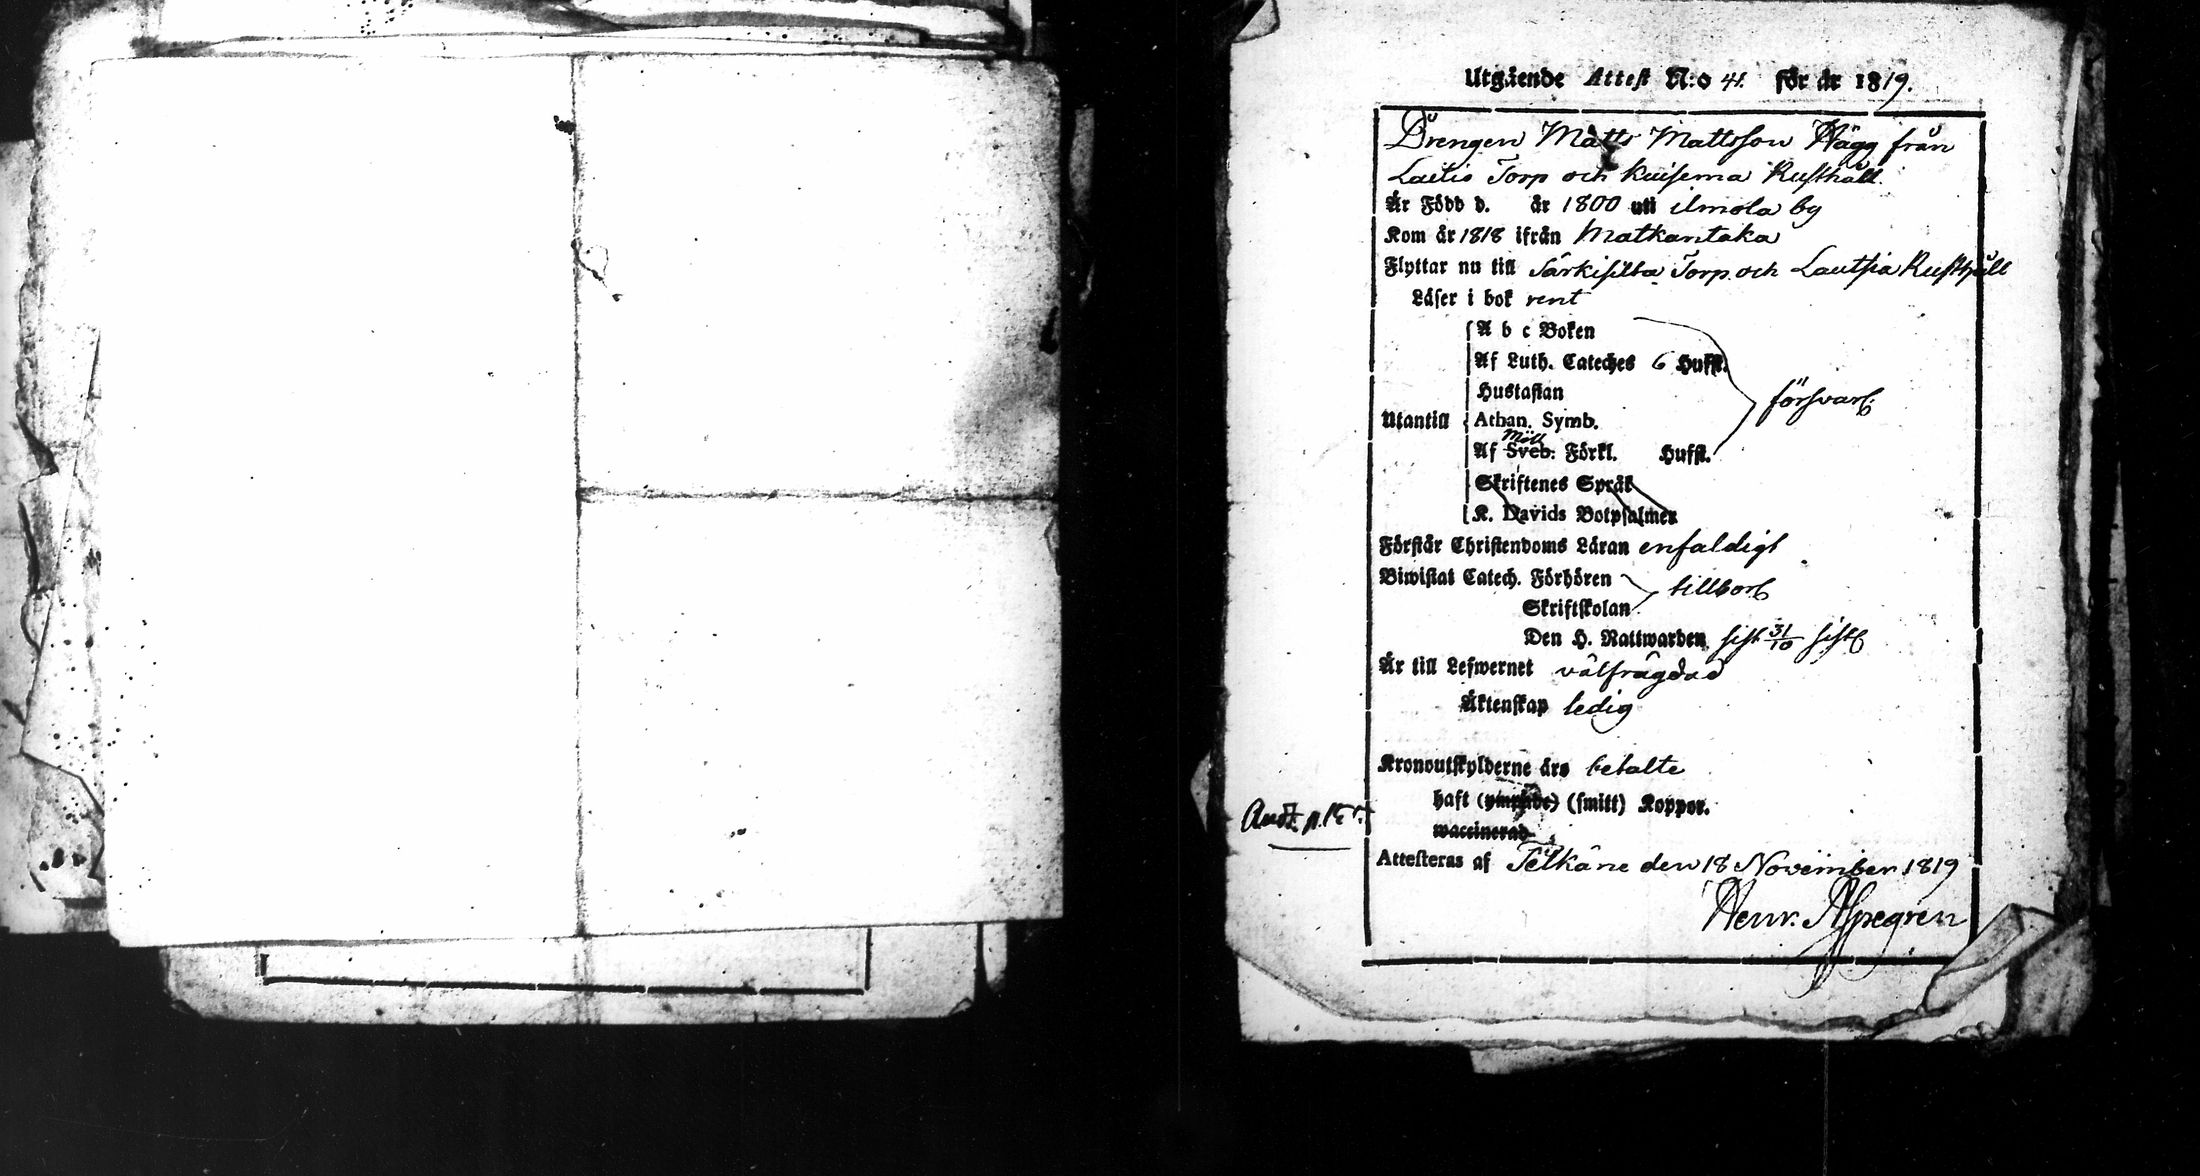 Utgående Attest N:o 41. för år 1819.
Drengen Matts Mattsson Hägg från
Laitis Torp och Kuisema Rusthåll.
Är Född d. år 1800 uti ilmola by
Kom år 1818 ifrån Matkantaka
Flyttar nu till Särkisilta Torp och Lautsia Rusthåll
Läser i bok rent
A b c Boken
Af Luth. Cateches 6 Hufst.
Hustaflan
Utantill Athan. Symb. försvarl.
Möll
Af Sveb. Förkl. Hufst.
Skriftenes Språk
K. Davids Botpsalmer
Förstår Christendoms Läran enfaldigt
Biwistat Catech. Förhören
Skriftskolan tillbörl.
Den H. Nattwarden sist 31/10 sistl.
Är till Lefwernet välfrägdad
Äktenskap ledig
Kronoutskylderne äro betalte
haft (ympade) (smitt) Koppor.
waccinerad
Attesteras af Pelkäne den 18 November 1819
Henr. Aspegrén